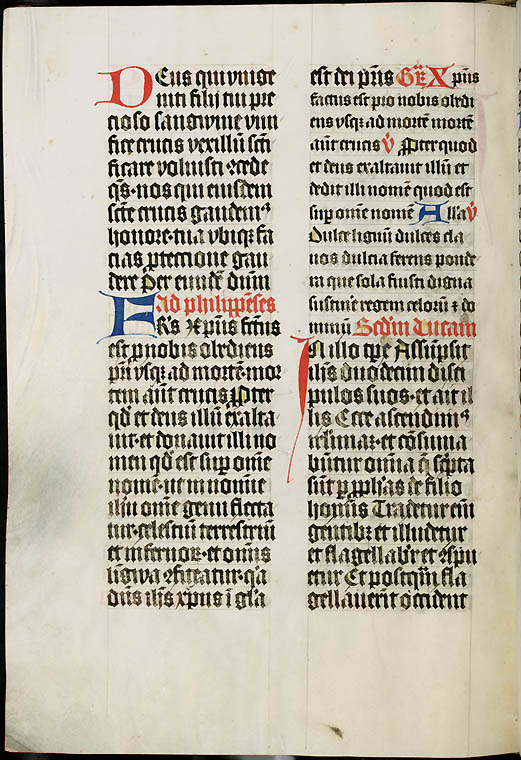 Deus qui vnige
niti filij tui pre
cioso sangwine viui
fice crucis vexillū scti
ficare voluisti ꝯcede
qs̄ nos qui eiusdem
scte crucis gaudemꝰ
honore tua vbiqꝫ fa
cias ꝓtectione gau
dere Per eundē dnm
Ad philippēses
Frs xp̄us factus
est ꝓ nobis obediens
prī vsqꝫ ad mortē mor
tem aūt crucis Ꝓpter
qd et deus illū exalta
uit et donauit illi no
men qd est suꝑ omē
nomē ut in nomīe
ih̄u omē genu flecta
tur celestiū terrestriū
et infernoꝝ et omīs
lingwa ꝯfiteatur qꝛ
dn̄s ih̄s xp̄us ī glīa
est dei pr̄is GR̄E Xp̄us
factus est pro nobis obedi
ens vsqꝫ ad mortē mortē
aūt crucis V̄ Ꝓpter quod
et deus exaltauit illū et
dedit illi nomē quod est
suꝑ omē nomē Alla V̄
Dulce lignū dulces cla
uos dulcia ferens ponde
ra que sola fuisti digna
sustinere regem celorū ⁊ do
minū Scd̄m Lucam
In illo tp̄e Assūpsit
ih̄s duodecim disci
pulos suos et ait il
lis Ecce ascendimꝰ
ierl̄imaꝫ et cōsūma
būtur omīa q̄ scp̄ta
sūt ꝑ ꝓph̄as de filio
homīs Tradetur eni
gentibꝫ et illudetur
et flagellabr̄ et ꝯspu
etur Et postqm̄ fla
gellauerīt occident